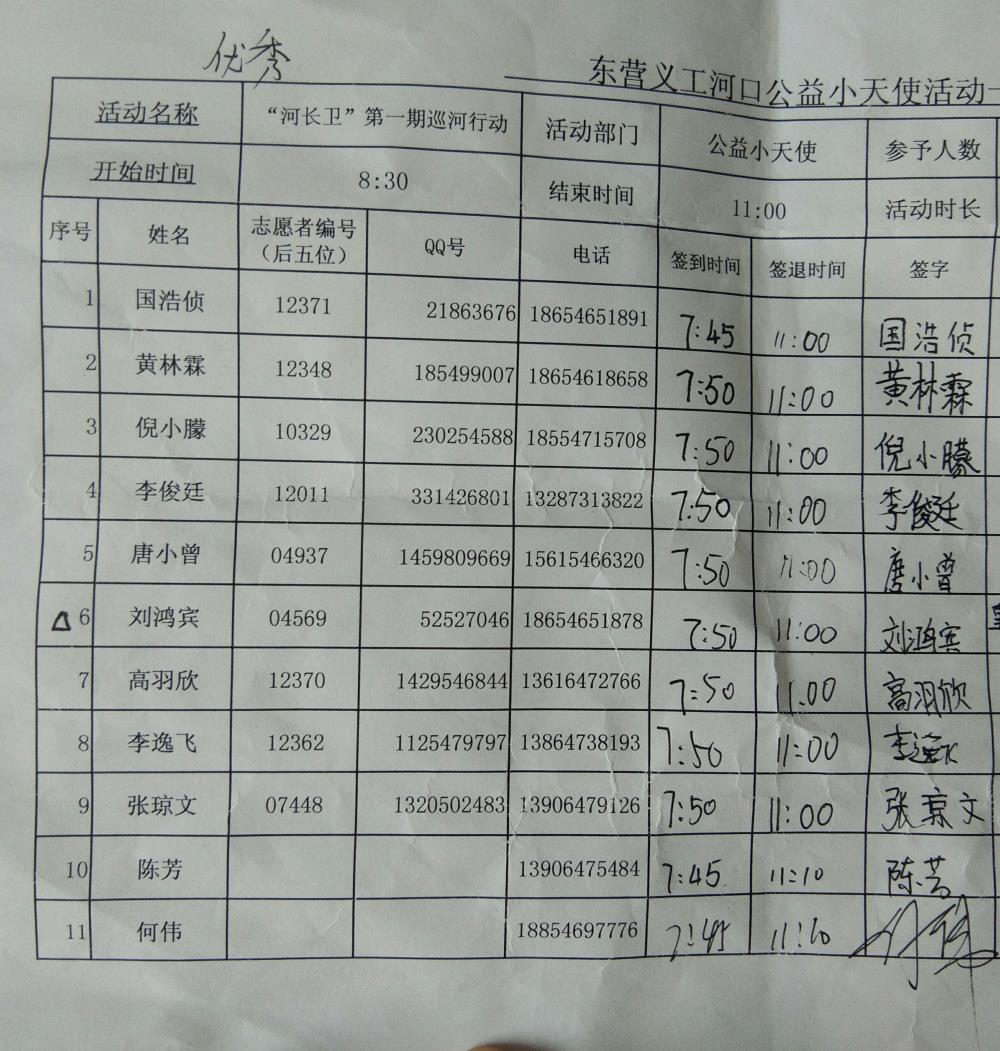 优秀
东营义工河口公益小天使活动
活动名称 “河长卫”第一期巡河行动 活动部门 公益小天使 参予人数
开始时间 8:30 结束时间 11:00 活动时长
序号 姓名 志愿者编号（后五位） QQ号 电话 签到时间 签退时间 签字
1 国浩侦 12371 21863676 18654651891 7:45 11:00 国浩侦
2 黄林霖 12348 185499007 18654618658 7:50 11:00 黄林霖
3 倪小朦 10329 230254588 18554715708 7:50 11:00 倪小朦
4 李俊廷 12011 331426801 13287313822 7:50 11:00 李俊廷
5 唐小曾 04937 1459809669 15615466320 7:50 11:00 唐小曾
△ 6 刘鸿宾 04569 52527046 18654651878 7:50 11:00 刘鸿宾
7 高羽欣 12370 1429546844 13616472766 7:50 11.00 高羽欣
8 李逸飞 12362 1125479797 13864738193 7:50 11:00 李逸飞
9 张琼文 07448 1320502483 13906479126 7:50 11:00 张琼文
10 陈芳 13906475484 7:45 11:10 陈芳
11 何伟 18854697776 7:45 11:10 何伟